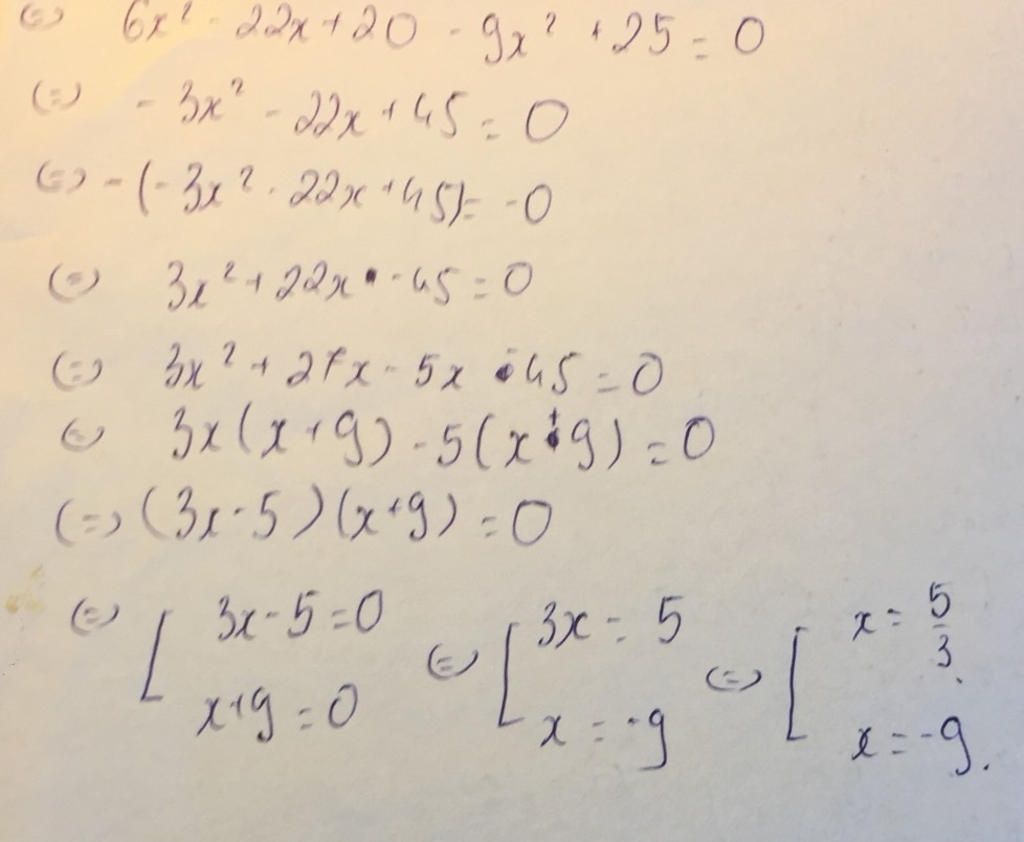 (=) 6x² - 22x + 20 - 9x² + 25 = 0
(=) - 3x² - 22x + 45 = 0
(=) - (- 3x² - 22x + 45) = -0
(=) 3x² + 22x - 45 = 0
(=) 3x² + 27x - 5x - 45 = 0
(=) 3x(x + 9) - 5(x + 9) = 0
(=) (3x - 5)(x + 9) = 0
(=) [ 3x - 5 = 0 (=) [ 3x = 5 (=) [ x = 5/3.
x + 9 = 0 x = -9 x = -9.